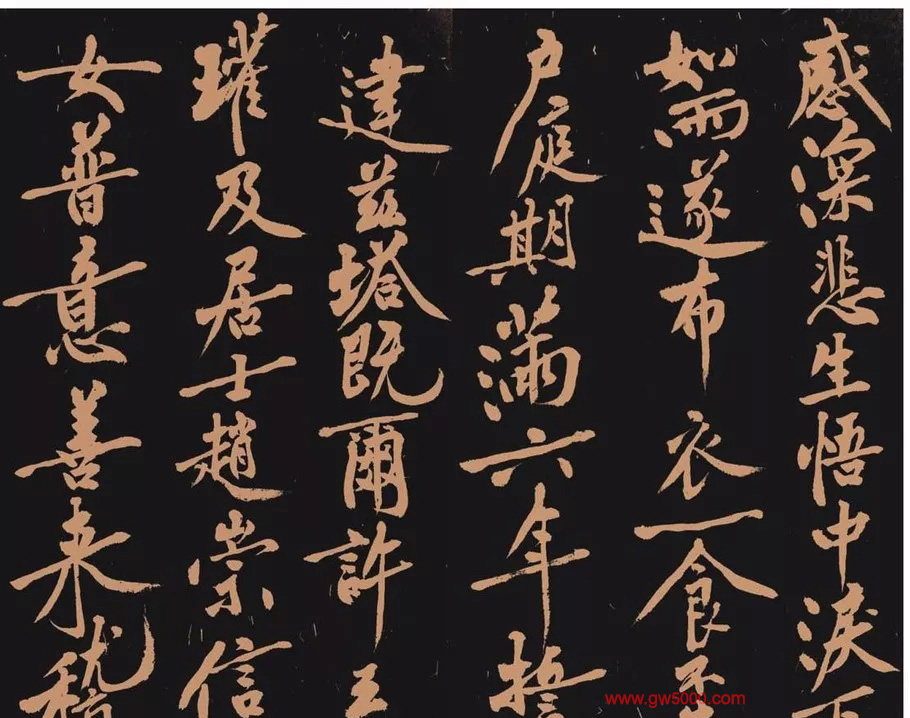 感深悲生悟中淚下
如雨遂布衣一食不
户庭期滿六年誓
建茲塔既爾許王
瓘及居士趙崇信
女普意善来稽
www.gw5000.com